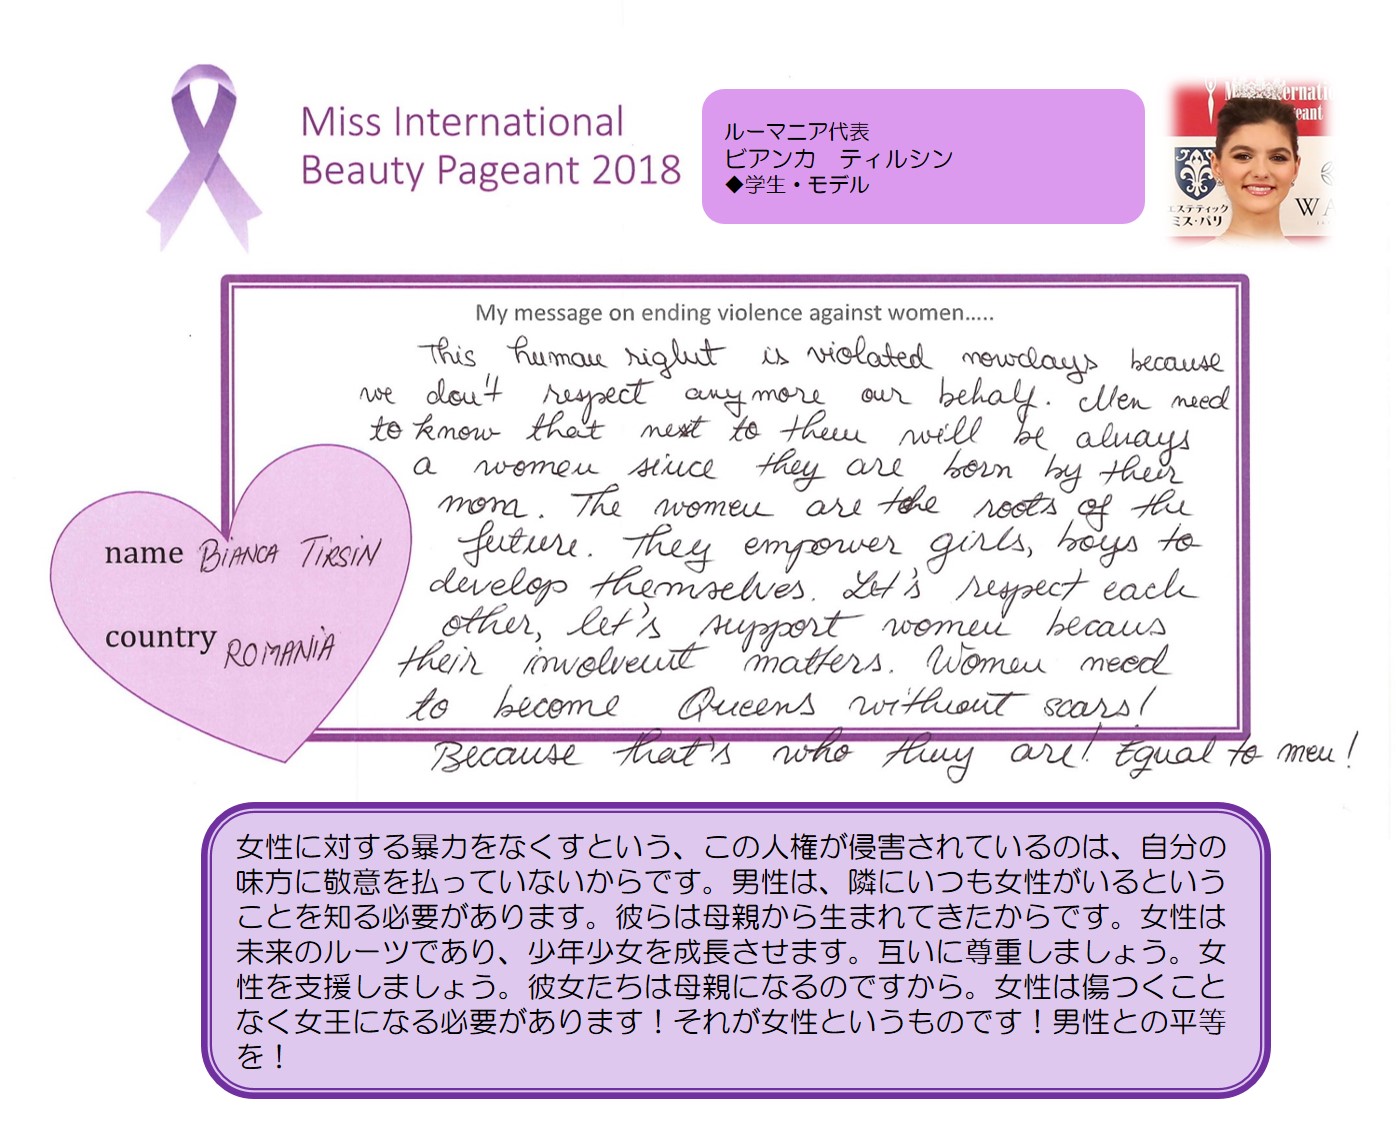 Miss International
Beauty Pageant 2018
ルーマニア代表
ビアンカ　ティルシン
◆学生・モデル
エステティック
ミス・パリ
My message on ending violence against women…..
This human right is violated nowdays because
we don't respect anymore our behalf. Men need
to know that next to them will be always
a women since they are born by their
mom. The women are the roots of the
future. They empower girls, boys to
develop themselves. Let's respect each
other, let's support women becaus
their involvent matters. Women need
to become Queens without scars!
Because that's who they are! Equal to men!
name BIANCA TIRSIN
country ROMANIA
女性に対する暴力をなくすという、この人権が侵害されているのは、自分の
味方に敬意を払っていないからです。男性は、隣にいつも女性がいるという
ことを知る必要があります。彼らは母親から生まれてきたからです。女性は
未来のルーツであり、少年少女を成長させます。互いに尊重しましょう。女
性を支援しましょう。彼女たちは母親になるのですから。女性は傷つくこと
なく女王になる必要があります！それが女性というものです！男性との平等
を！